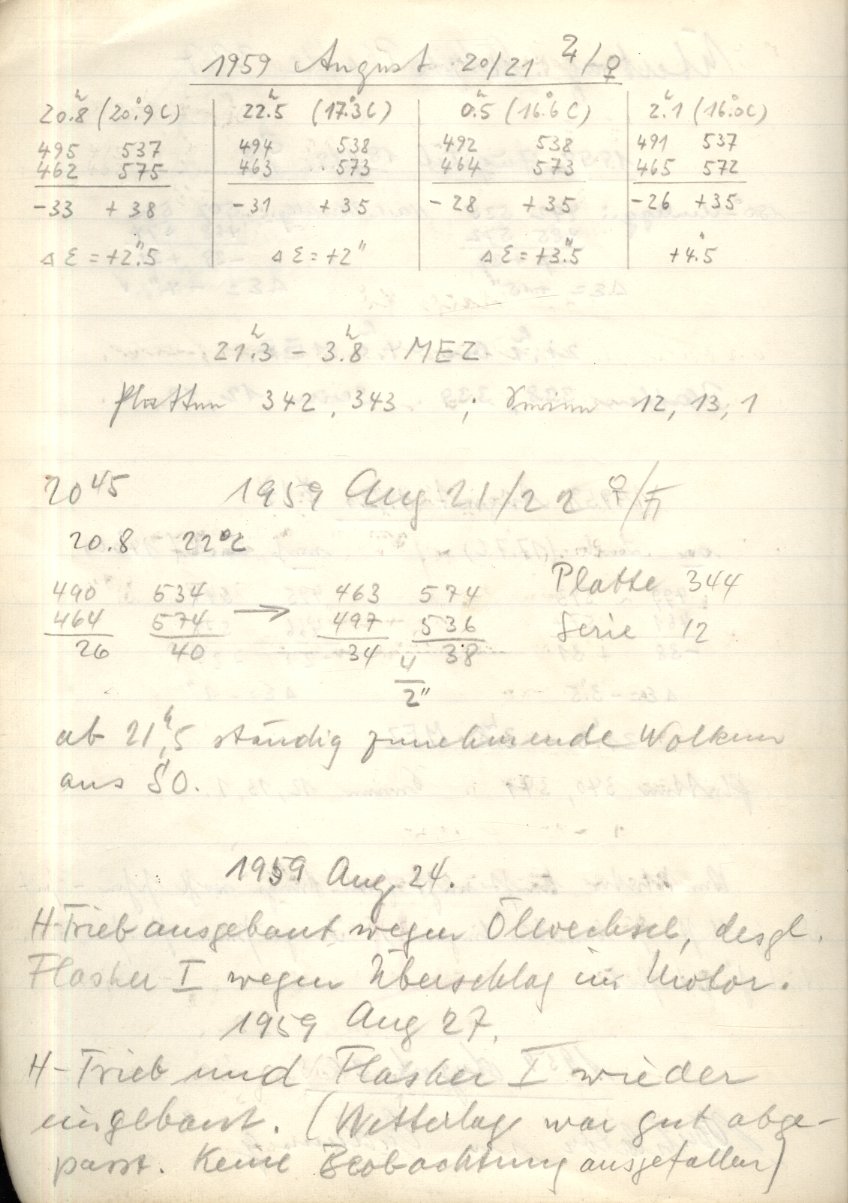 1959 August 20/21 ♃/♀
20ʰ.8 (20°.9 C) 22ʰ.5 (17°.3 C) 0ʰ.5 (16°.6 C) 2ʰ.1 (16°.0 C)
495 537 494 538 492 538 491 537
462 575 463 573 464 573 465 572
-33 +38 -31 +35 -28 +35 -26 +35
Δ ε = +2".5 Δ ε = +2" Δ ε = +3".5 +4".5
21ʰ.3 - 3ʰ.8 MEZ
Platten 342, 343 ; Serien 12, 13, 1
20⁴⁵ 1959 Aug 21/22 ♀/♄
20.8 22°C
490 534 → 463 574 Platte 344
464 574 497 536 Serie 12
26 40 34 38
4
2"
ab 21ʰ,5 ständig zunehmende Wolken
aus SO.
1959 Aug 24.
H-Trieb ausgebaut wegen Ölwechsel, desgl.
Flasher I wegen Überschlag im Motor.
1959 Aug 27.
H-Trieb und Flasher I wieder
eingebaut. (Wetterlage war gut abge-
passt. Keine Beobachtung ausgefallen)